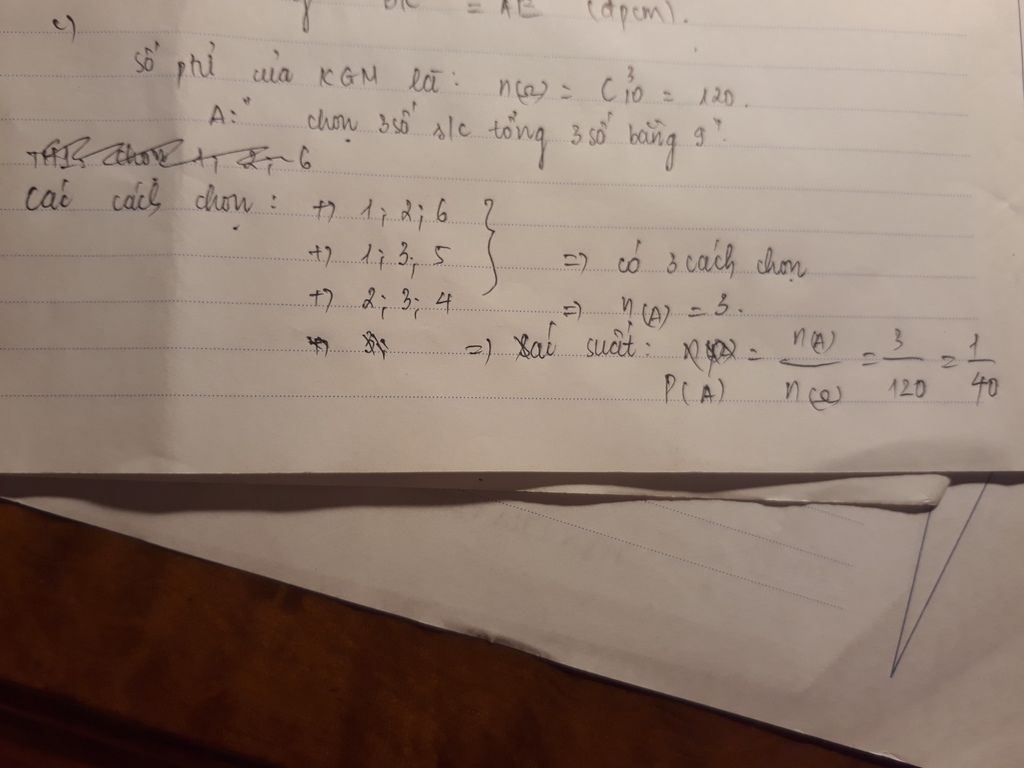 = AE (đpcm).
c)
Số phtử của KGM là: n(Ω) = C³₁₀ = 120.
A: " chọn 3 số s/c tổng 3 số bằng 9".
chọn 1, 2, 6
Các cách chọn : +) 1; 2; 6
+) 1; 3; 5 => có 3 cách chọn
+) 2; 3; 4 => n(A) = 3.
=> Xác suất: P(A) = n(A)/n(Ω) = 3/120 = 1/40